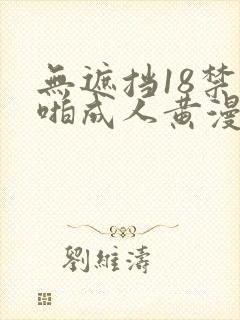 無遮挡18禁
啪成人黄漫
劉維濤